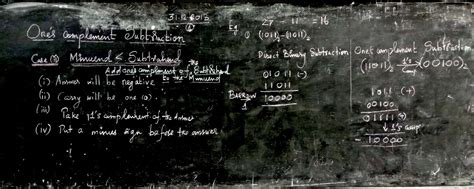 31-12-2013
Ones complement Subtraction
Case (3) Minuend < Subtrahend
Add ones complement of the Subtrahend
to the Minuend
(i) Answer will be negative
(ii) Carry will be
(iii) Take 1's complement of the Answer
(iv) Put a minus sign before the answer
Eg. 27 11 = 16
Direct Binary Subtraction
01011 (-)
11011
Borrow 10000
1
Ones complement Subtraction
(11011) 1's Comp (00100)
1011 (+)
00100
01111 (+)
1's comp
- 10000